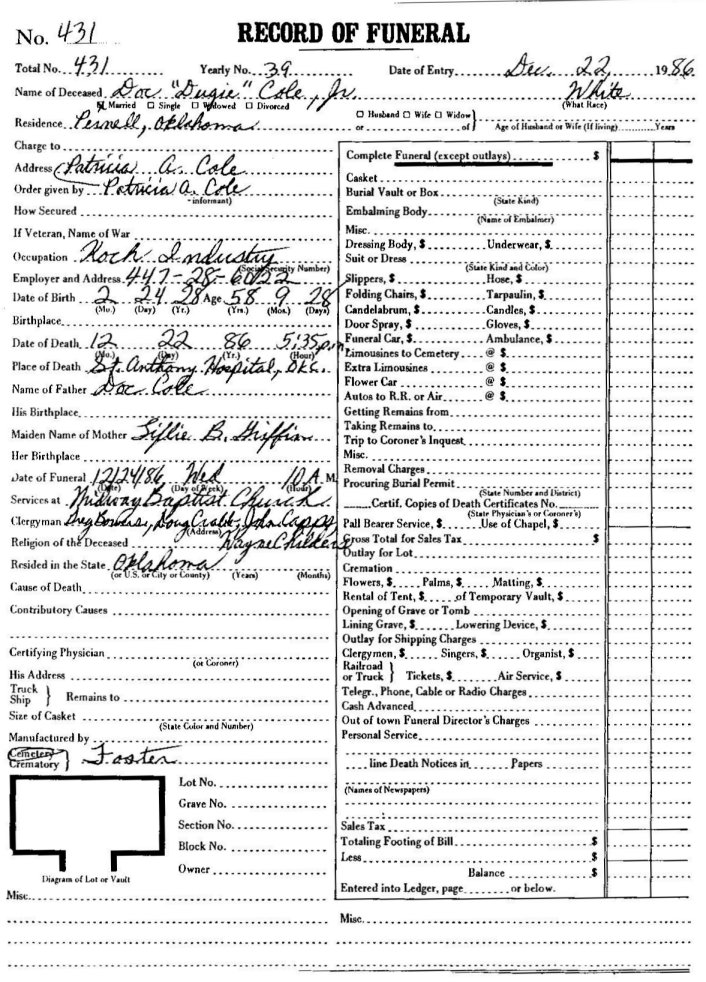 No. 431
RECORD OF FUNERAL
Total No. 431 Yearly No. 39 Date of Entry Dec. 22, 1986
Name of Deceased Doc "Dugie" Cole, Jr. White
Married Single Widowed Divorced (What Race)
Residence Pernell, Oklahoma
Husband Wife Widow
or of Age of Husband or Wife (If living) Years
Charge to
Address Patricia A. Cole
Order given by Patricia A. Cole
informant)
How Secured
If Veteran, Name of War
Occupation Koch Industry
(Social Security Number)
Employer and Address 447-28-
Date of Birth 2 24 28 Age 58 9 28
(Mo.) (Day) (Yr.) (Yrs.) (Mos.) (Days)
Birthplace
Date of Death 12 22 86 5:35 pm
(Mo.) (Day) (Yr.) (Hour)
Place of Death St. Anthony Hospital, OKC.
Name of Father Doc Cole
His Birthplace
Maiden Name of Mother Lillie B. Griffian
Her Birthplace
Date of Funeral 12/24/86 Wed 10 A.M.
(Date) (Day of Week) (Hour)
Services at Midway Baptist Church
Clergyman Greg Bowens, Doug Crabtr, John Capps
(Address)
Religion of the Deceased Wayne Childers
Resided in the State Oklahoma
(or U.S. or City or County) (Years) (Months)
Cause of Death
Contributory Causes
Certifying Physician
(or Coroner)
His Address
Truck
Ship } Remains to
Size of Casket
(State Color and Number)
Manufactured by
Cemetery
Crematory } Foster
Lot No.
Grave No.
Section No.
Block No.
Owner
Diagram of Lot or Vault
Misc.
Complete Funeral (except outlays) $
Casket
Burial Vault or Box
(State Kind)
Embalming Body
(Name of Embalmer)
Misc.
Dressing Body, $ Underwear, $
Suit or Dress
(State Kind and Color)
Slippers, $ Hose, $
Folding Chairs, $ Tarpaulin, $
Candelabrum, $ Candles, $
Door Spray, $ Gloves, $
Funeral Car, $ Ambulance, $
Limousines to Cemetery @ $
Extra Limousines @ $
Flower Car @ $
Autos to R.R. or Air @ $
Getting Remains from
Taking Remains to
Trip to Coroner's Inquest
Misc.
Removal Charges
Procuring Burial Permit
(State Number and District)
Certif. Copies of Death Certificates No.
(State Physician's or Coroner's)
Pall Bearer Service, $ Use of Chapel, $
Gross Total for Sales Tax $
Outlay for Lot
Cremation
Flowers, $ Palms, $ Matting, $
Rental of Tent, $ of Temporary Vault, $
Opening of Grave or Tomb
Lining Grave, $ Lowering Device, $
Outlay for Shipping Charges
Clergymen, $ Singers, $ Organist, $
Railroad
or Truck } Tickets, $ Air Service, $
Telegr., Phone, Cable or Radio Charges
Cash Advanced
Out of town Funeral Director's Charges
Personal Service
line Death Notices in Papers
(Names of Newspapers)
Sales Tax
Totaling Footing of Bill $
Less $
Balance $
Entered into Ledger, page or below.
Misc.